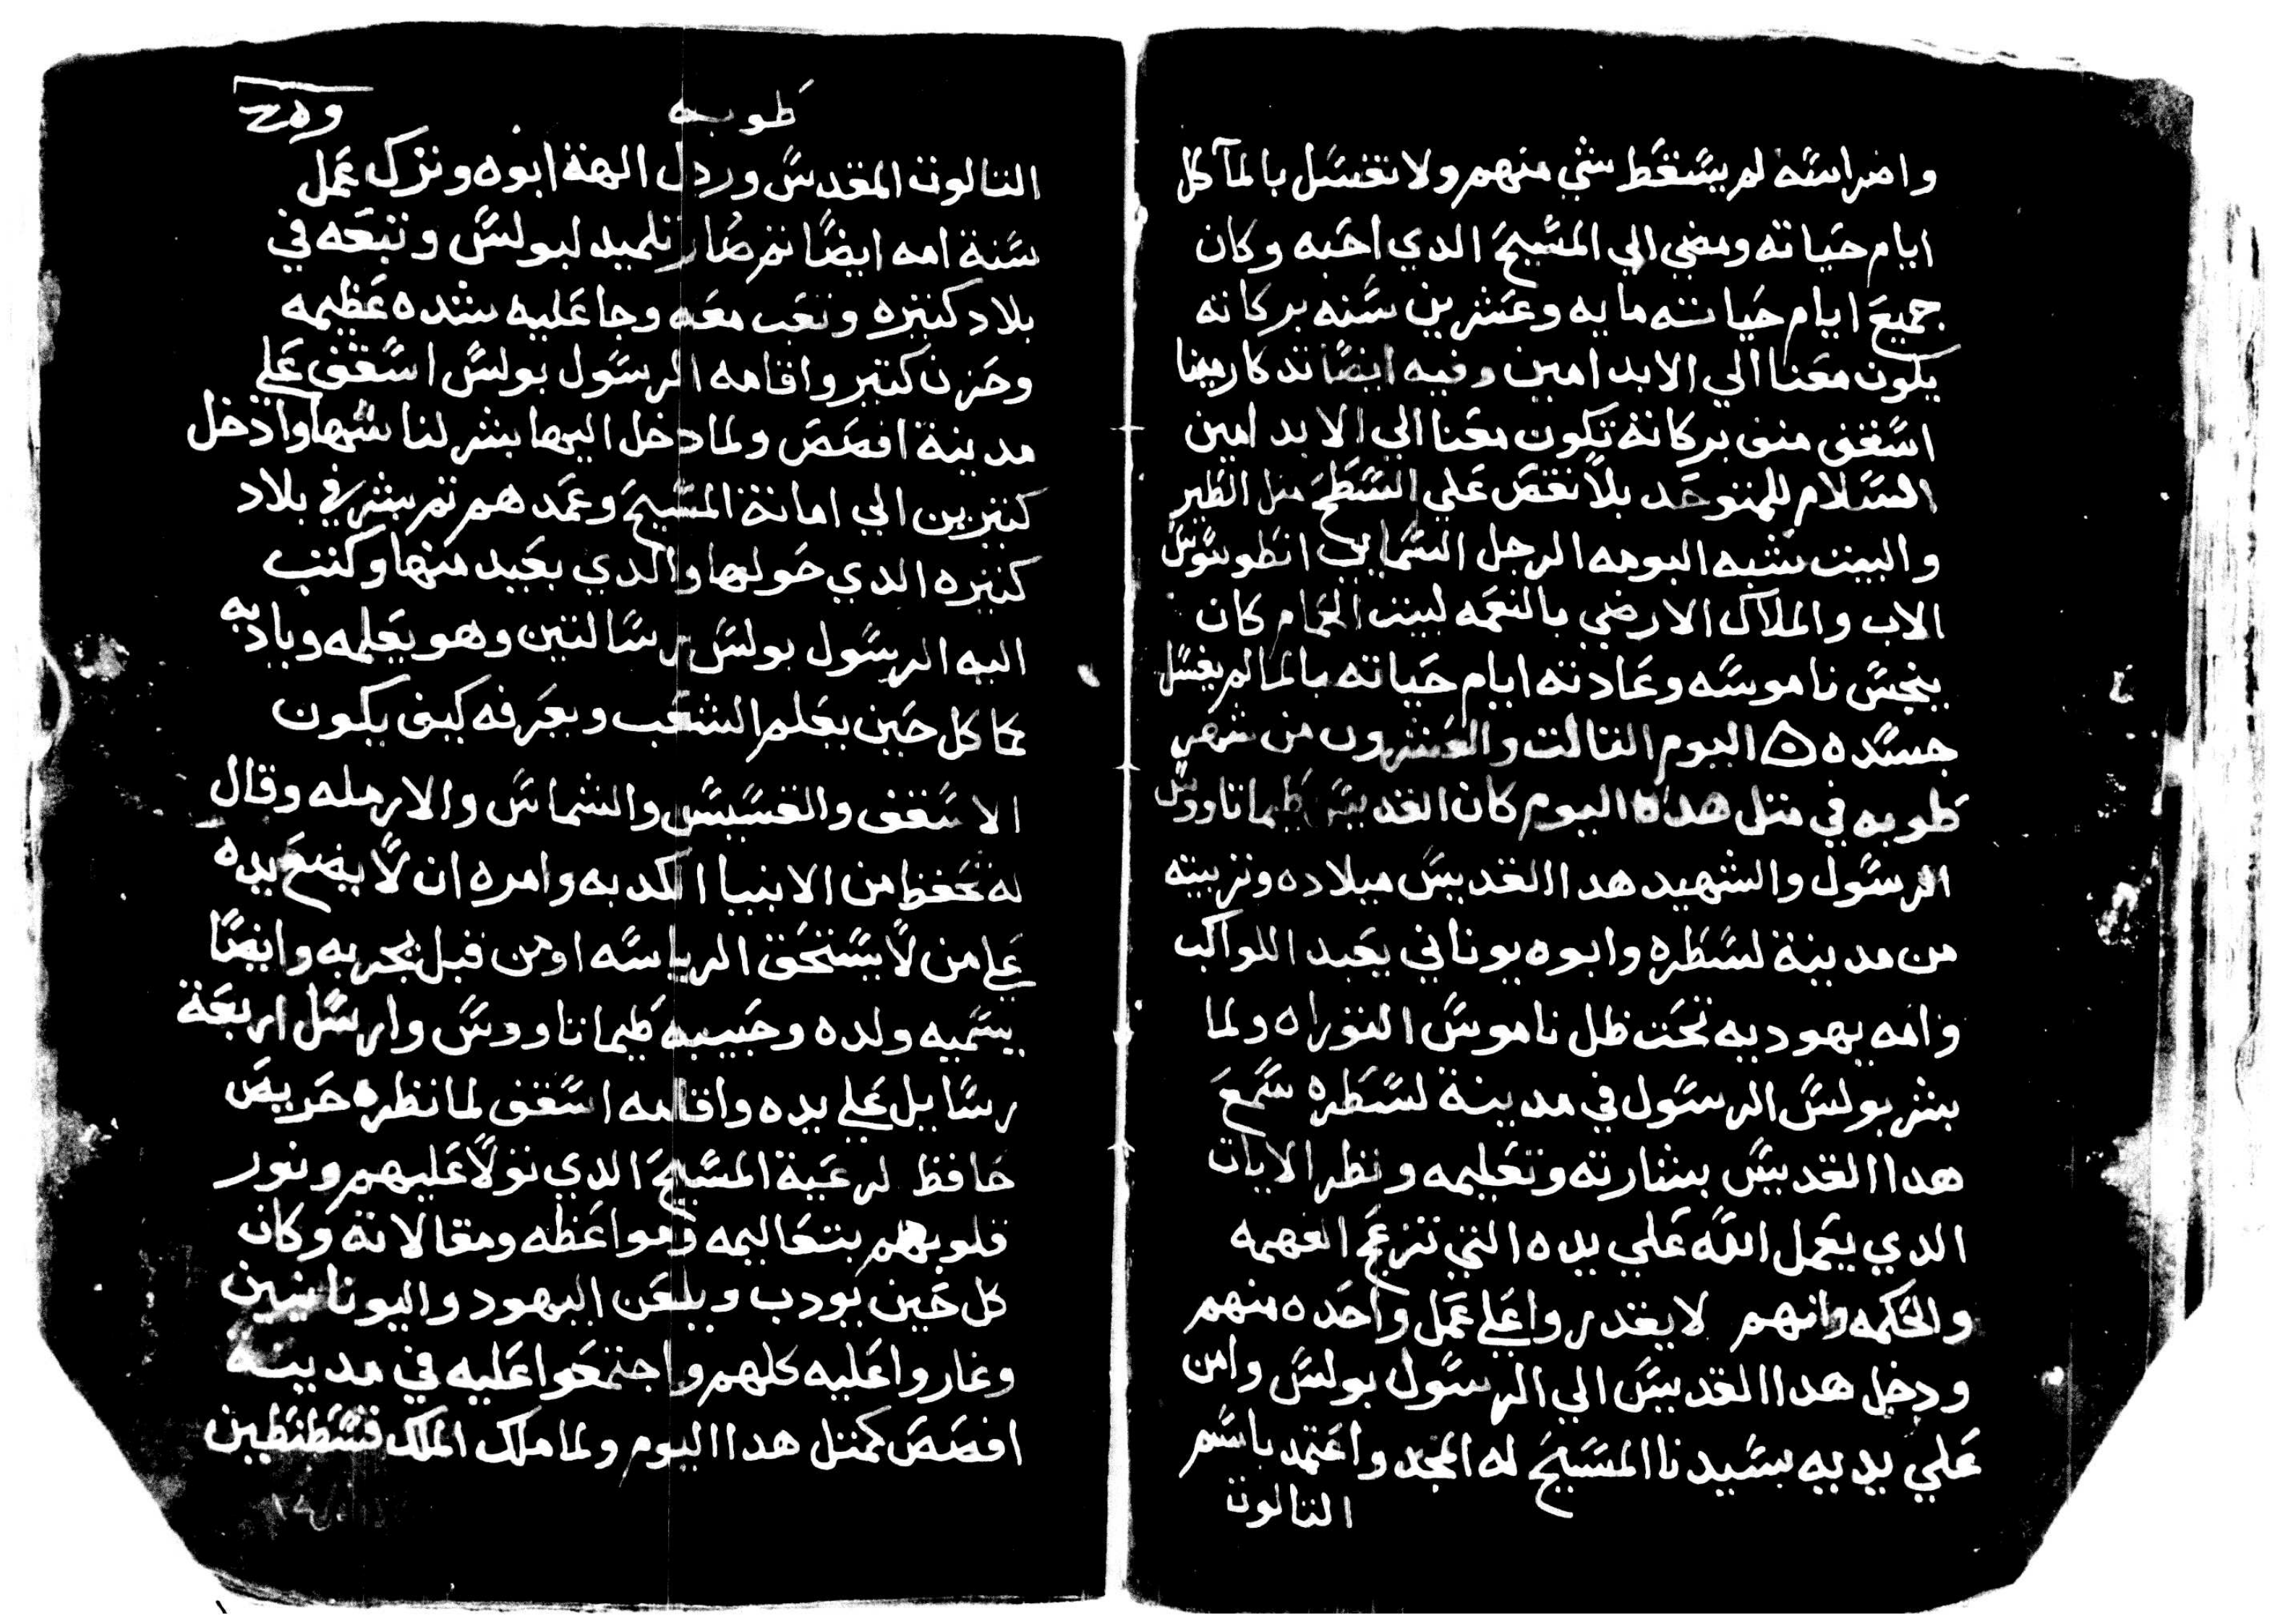 واضراسه لم يسقط شي منهم ولا تغسل بالمآ كل
ايام حياته ومضي الي المسيح الدي احبه وكان
جميع ايام حياته مايه وعشرين سنه بركاته
يكون معنا الي الابد امين وفيه ايضا تدكار مينا
اسقف منف بركاته تكون معنا الي الابد امين
السلام للمتوحد بلا نقص علي السطح متل الطير
والبيت تشبه البومه الرجل السمايي انطوسوس
الاب والملاك الارضي بالنعمه لبيت الحمام كان
ينجس ناموسه وعادته ايام حياته بالما لم يغسل
جسده اليوم التالت والعشرون من شهر
طوبه في متل هده اليوم كان القديس طيماتاووس
الرسول والشهيد هدا القديس ميلاده وتربيته
من مدينة لسطره وابوه يوناني يعبد اللواكب
وامه يهوديه تحت ظل ناموس التوراه ولما
بشر بولس الرسول في مدينة لسطره سمع
هدا القديس بشارته وتعليمه ونظر الايات
الدي يعمل الله علي يده التي تنزعج الفهمه
والحكمه وانهم لا يقدروا علي عمل واحده منهم
ودخل هدا القديس الي الرسول بولس وامن
علي يديه بسيدنا المسيح له المجد واعتمد باسم
التالوت
طوبه
التالوت المقدس وردل الهة ابوه وترك عمل
سنة امه ايضا تم صار تلميد لبولس وتبعه في
بلاد كتيره وتعب معه وجا عليه شده عظيمه
وحزن كتير واقامه الرسول بولس اسقف علي
مدينة افصص ولما دخل اليها بشر لنا سها وادخل
كتيرين الي امانة المسيح وعمدهم تم بشر في بلاد
كتيره الدي حولها والدي بعيد منها وكتب
اليه الرسول بولس رسالتين وهو يعلمه ويادبه
كما كل حين يعلم الشعب ويعرفه كيف يكون
الاسقف والقسيس والشماس والارمله وقال
له تحفظ من الانبيا الكدبه وامره ان لا يضع يده
علي من لا يستحق الرياسه او من قبل يجربه وايضا
يسميه ولده وحبيبه طيماتاووس وارسل اربعة
رسايل علي يده واقامه اسقف لما نظره حريص
حافظ لرعية المسيح الدي تولا عليهم ونور
قلوبهم بتعاليمه ومواعظه ومقالاته وكان
كل حين يودب ويلعن اليهود واليونانيين
وغاروا عليه كلهم واجتمعوا عليه في مدينة
افصص كمتل هدا اليوم ولما ملك الملك قسطنطين